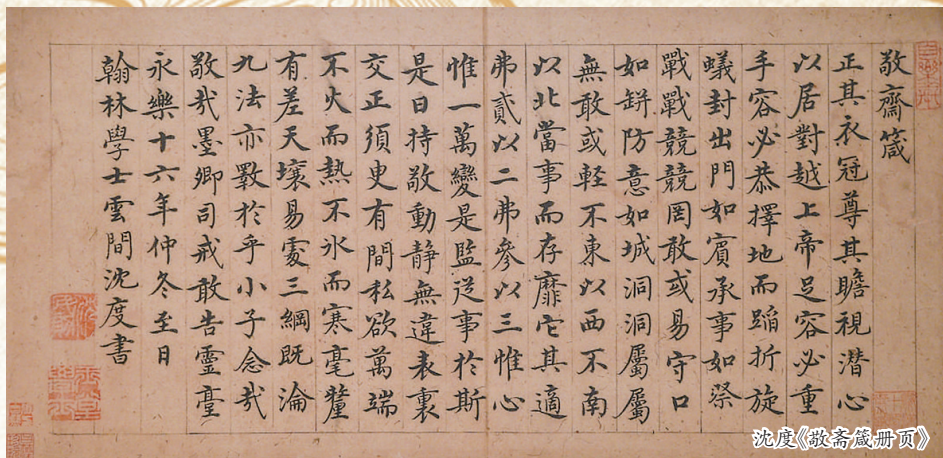 敬齋箴
正其衣冠尊其瞻視潛心
以居對越上帝足容必重
手容必恭擇地而蹈折旋
蟻封出門如賓承事如祭
戰戰兢兢罔敢或易守口
如缾防意如城洞洞屬屬
無敢或輕不東以西不南
以北當事而存靡它其適
弗貳以二弗參以三惟心
惟一萬變是監從事於斯
是曰持敬動靜無違表裏
交正須臾有間私欲萬端
不火而熱不氷而寒毫釐
有差天壤易處三綱既淪
九法亦斁於乎小子念哉
敬哉墨卿司戒敢告靈臺
永樂十六年仲冬至日
翰林學士雲間沈度書
沈度《敬斋箴册页》